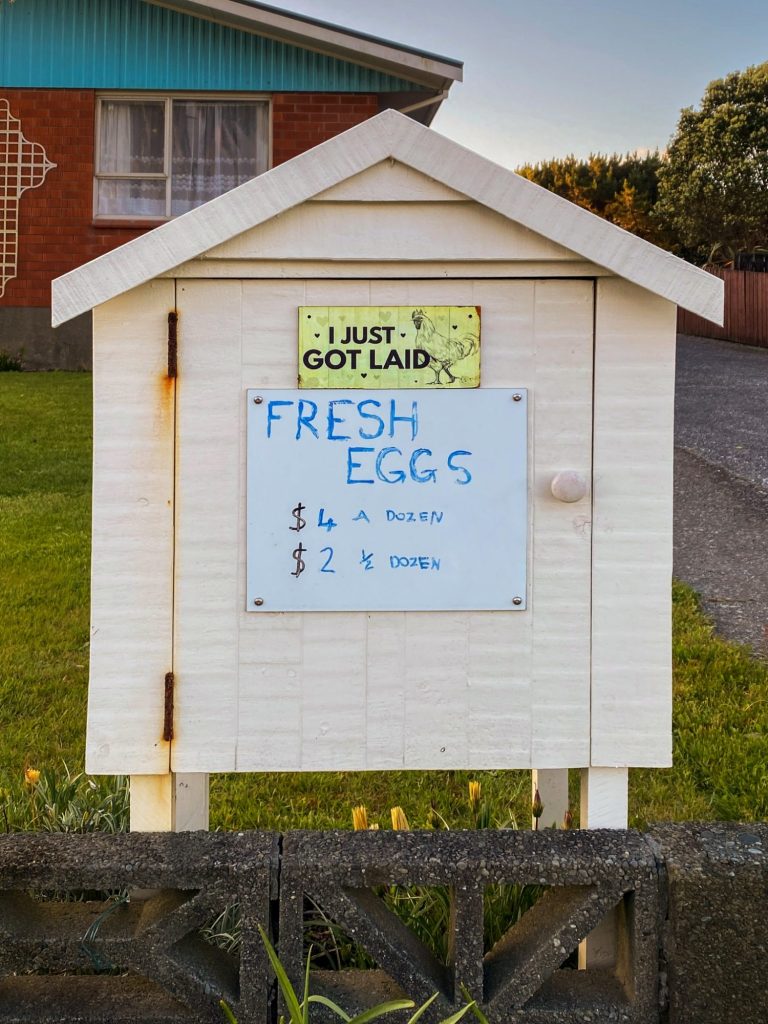 I JUST
GOT LAID
FRESH
EGGS
$4 A DOZEN
$2 ½ DOZEN